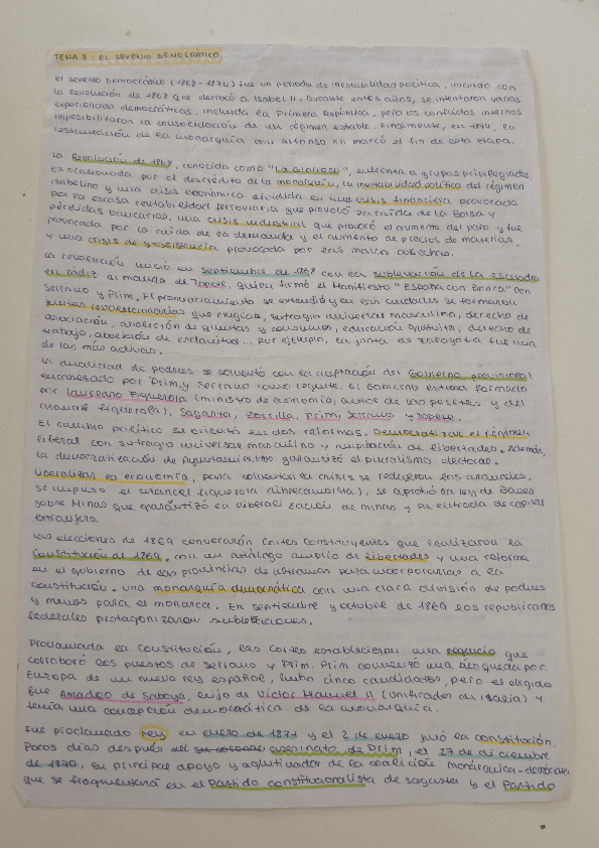 TEMA 3: EL SEXENIO DEMOCRÁTICO.
El sexenio democrático (1868-1874) fue un periodo de inestabilidad política, iniciado con
la Revolución de 1868 que derrocó a Isabel II. Durante estos años, se intentaron varias
experiencias democráticas, incluida la Primera República, pero los conflictos internos
imposibilitaron la consolidación de un régimen estable. Finalmente, en 1874, la
restauración de la monarquía con Alfonso XII marcó el fin de esta etapa.
La Revolución de 1868, conocida como "La Gloriosa", enfrenta a grupos privilegiados
Es ocasionada por el descrédito de la monarquía, la inestabilidad política del régimen
isabelino y una crisis económica dividida en una crisis financiera provocada
por la escasa rentabilidad ferroviaria que provocó la caída de la Bolsa y
pérdidas bancarias, una crisis industrial que provocó el aumento del paro y fue
provocada por la caída de la demanda y el aumento de precios de materias,
y una crisis de subsistencia provocada por las malas cosechas.
La revolución inició en septiembre de 1868 con la sublevación de la escuadra
en Cádiz al mando de Topete, quien firmó el Manifiesto "España con honra" con
Serrano y Prim. El pronunciamiento se extendió y en las ciudades se formaron
juntas revolucionarias que exigían, sufragio universal masculino, derecho de
asociación, abolición de quintas y consumos, educación gratuita, derecho de
trabajo, abolición de esclavitud... por ejemplo, la junta de Zaragoza fue una
de las más activas.
La dualidad de poderes se solventó con la aceptación del Gobierno provisional
encabezado por Prim, y Serrano como regente. El Gobierno estaba formado
por Laureano Figuerola (ministro de economía, autor de la peseta y del
arancel Figuerola), Sagasta, Zorrilla, Prim, Serrano y Topete.
El cambio político se orientó en dos reformas. Democratizar el régimen
liberal con sufragio universal masculino y ampliación de libertades. Además,
la democratización de Ayuntamientos garantizó el pluralismo electoral.
Liberalizar la economía, para solventar la crisis se redujeron los aranceles,
se impuso el arancel Figuerola (librecambista), se aprobó la ley de Bases
sobre Minas que garantizó la liberalización de minas y la entrada de capital
extranjero.
Las elecciones de 1869 convocarón Cortes Constituyentes que realizaron la
Constitución de 1869, con un catálogo amplio de libertades y una reforma
en el gobierno de las provincias de ultramar para incorporarlas a la
constitución. Una monarquía democrática con una clara división de poderes
y menos para el monarca. En septiembre y octubre de 1869 los republicanos
federales protagonizaron sublevaciones.
Proclamada la constitución, las Cortes establecieron una regencia que
corroboró los puestos de Serrano y Prim. Prim comenzó una búsqueda por
Europa de un nuevo rey español, hubo cinco candidatos, pero el elegido
fue Amadeo de Saboya, hijo de Victor Manuel II (Unificador de Italia) y
tenía una concepción democrática de la monarquía.
Fue proclamado rey en enero de 1871 y el 2 de enero juró la constitución.
Pocos días después del asesinato de Prim, el 27 de diciembre
de 1870, su principal apoyo y aglutinador de la coalición monárquica-demócrata
que se fragmentará en el Partido constitucionalista de Sagasta y el Partido